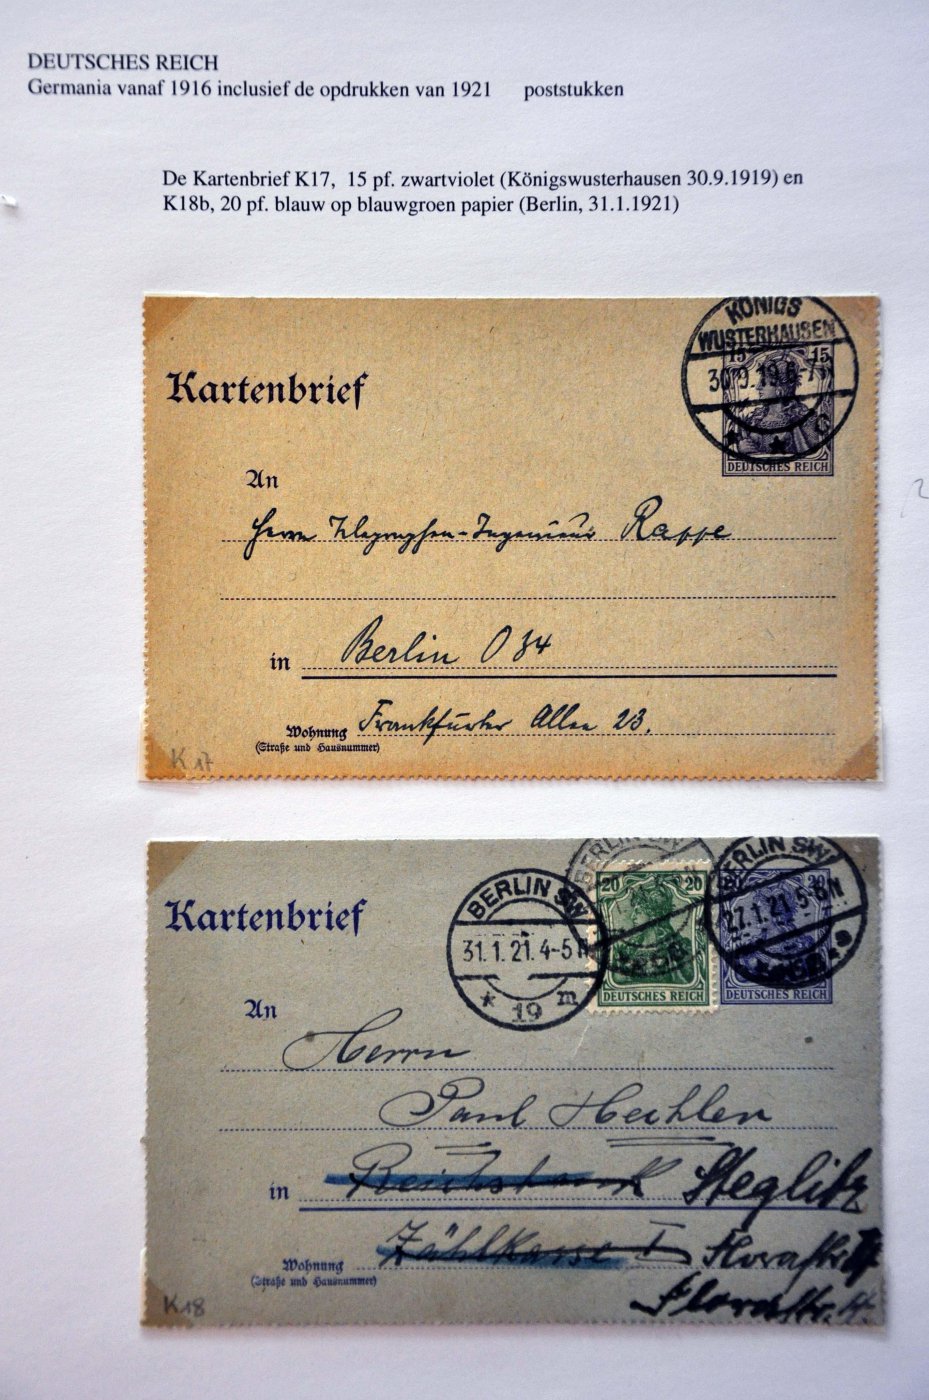 DEUTSCHES REICH
Germania vanaf 1916 inclusief de opdrukken van 1921 poststukken
De Kartenbrief K17, 15 pf. zwartviolet (Königswusterhausen 30.9.1919) en
K18b, 20 pf. blauw op blauwgroen papier (Berlin, 31.1.1921)
KÖNIGS
WUSTERHAUSEN
15 15
30.9.19.6-7
DEUTSCHES REICH
Kartenbrief
An
Herrn Telegraphen-Ingenieur Rappe
in Berlin O 34
Wohnung Frankfurter Allee 23.
(Straße und Hausnummer)
K 17
BERLIN SW
20 20
BERLIN SW
20 20
BERLIN SW
31.1.21.4-5N
* 19 m
27.1.21.5-6N
DEUTSCHES REICH
DEUTSCHES REICH
Kartenbrief
An
Herrn
Paul Hechler
in Reichsbank Steglitz
Zählkasse I
Wohnung
(Straße und Hausnummer)
Florastr.
K18